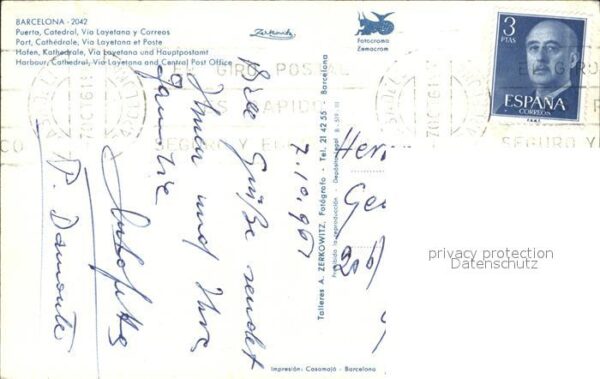 BARCELONA - 2042
Puerta, Catedral, Via Layetana y Correos
Port, Cathédrale, Via Layetana et Poste
Hafen, Kathedrale, Via Layetana und Hauptpostamt
Harbour, Cathedral, Via Layetana and Central Post Office
Zerkowitz
Fotocroma
Zemacrom
3
PTAS
ESPAÑA
CORREOS
EL GIRO POSTAL
ES RAPIDO
SEGURO Y
7.10.967
Viele Grüße sendet
Ihnen und Ihrer
Familie
P. Damonte
Talleres A. ZERKOWITZ, Fotógrafo - Tel. 21 42 55 - Barcelona
Prohibida la reproducción - Depósito legal B.
Herr
privacy protection
Datenschutz
Impresión: Casamajó - Barcelona